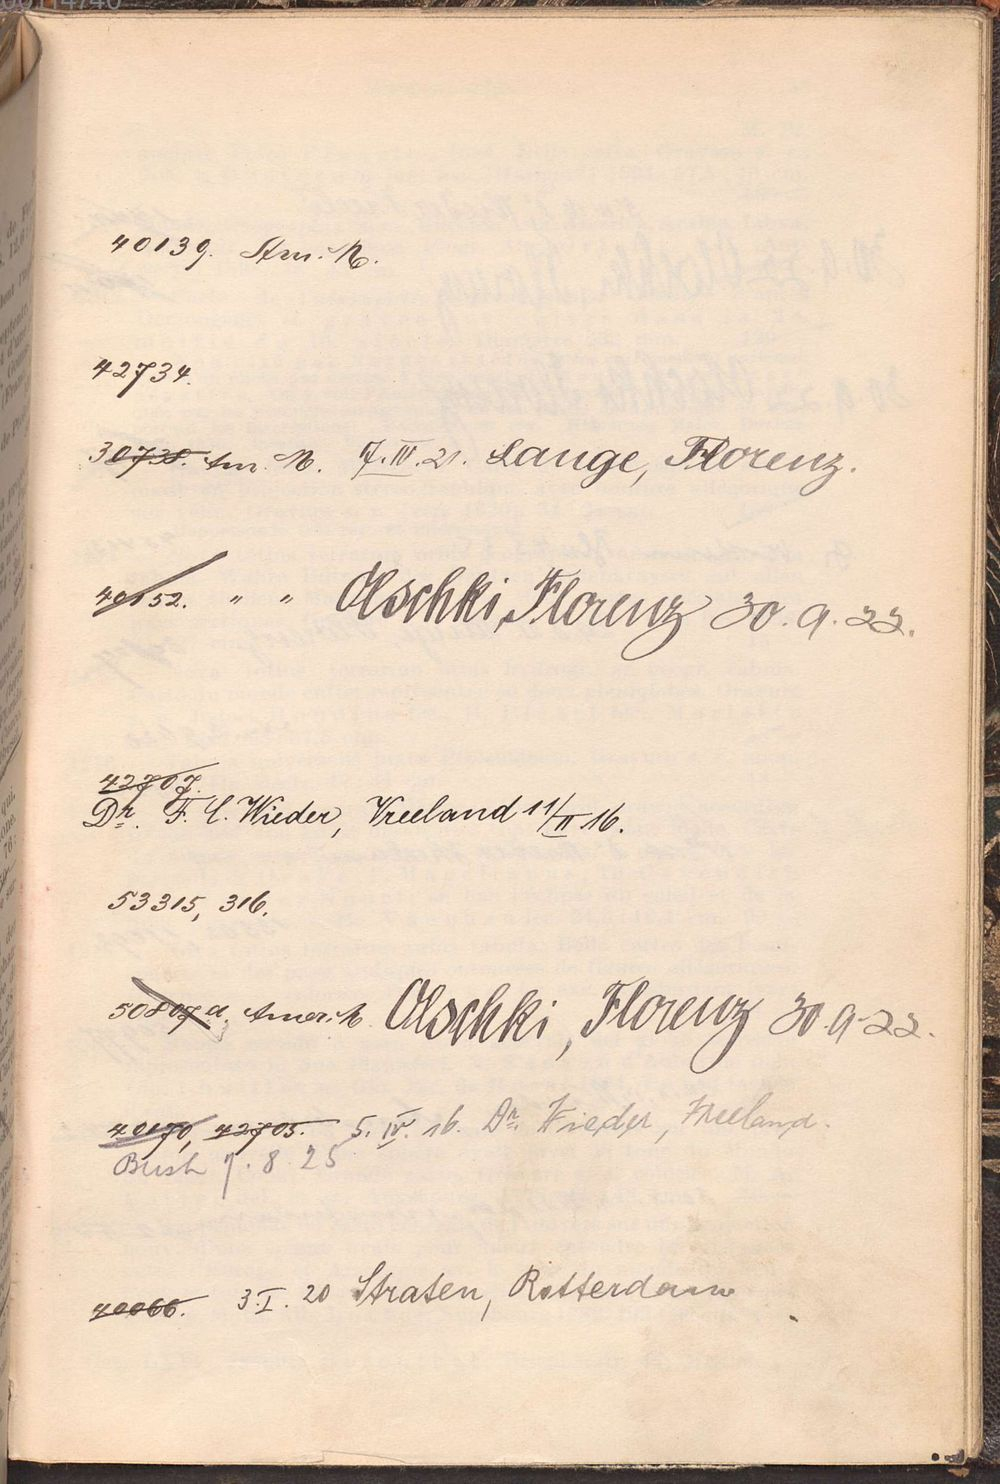 40139. Am. N.
42734.
30738. Am. N. 7.IV.21. Lange, Florenz.
40152. " " Olschki, Florenz 30.9.22.
42707.
Dr. F. C. Wieder, Vreeland 11/II 16.
53315, 316.
50807a. Amer. N. Olschki, Florenz 30.9.22.
40170, 42705. 5.IV.16. Dr. Wieder, Vreeland.
7.8 25
40066. 3.I.20 Straten, Rotterdam